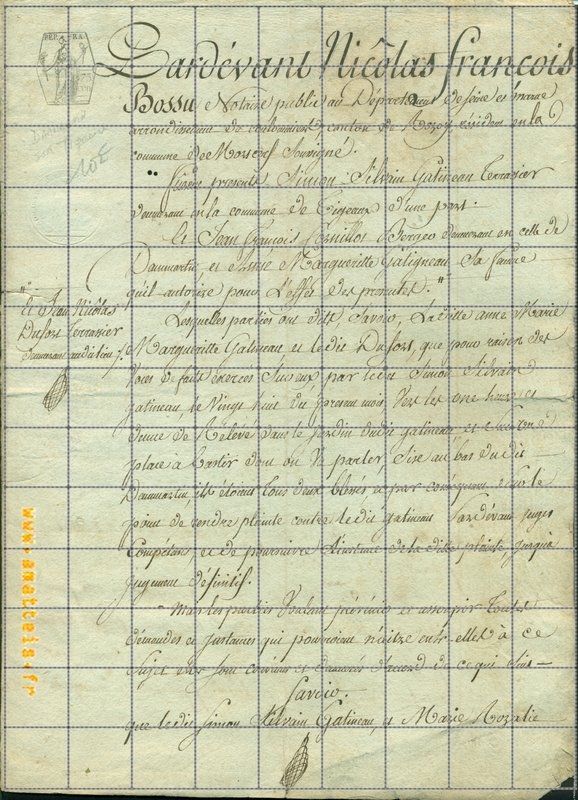 REP. FRA.
75
Pardévant Nicôlas françois
Bossu, Notaire public au Département de seine et marne
arrondissement de coulommiers, canton de Rozoy résident en la
commune de Mortcerf Soussigné.
" furent présents Simon Silvain Gatineau terrassier
Demeurant en la commune de Tigeaux d'une part.
Et Jean françois Berger demeurant en celle de
Dammartin, et Anne Margueritte Gatigneau Sa femme
qu'il autorise pour L'effet des présentes. "
"
et Jean Nicôlas
Dufort Terrassier
demeurant audit lieu
Lesquelles parties ont dit Savoir, La ditte anne Marie
Margueritte Gatineau, et ledit Dufort, que pour raison des
Voies de faits exercés Sur eux par ledit Simon Silvain
gatineau le Vingt huit du présent mois Vers les onze heures et
demie de Rélévé dans le Jardin dudit gatineau, et Sur une
place à Bastir dont on Va parler, Sise au bas dudit
Dammartin, ils étoient tous deux blessés et par conséquent Sur le
point de rendre plainte contre ledit gatineau Pardévant Juges
Compétans, et de poursuivre L'instance de la ditte plainte, Jusqu'à
Jugement définitif.
Mais les parties Voulant prévenir et assoupir Toutes
demandes et Instances qui pourroient naître entre elles à ce
Sujet en sont convenus et demeurés d'accord de ce qui Suit
Savoir.
que ledit Simon Silvain Gatineau, et Marie Rozalie
www.anatteis.fr